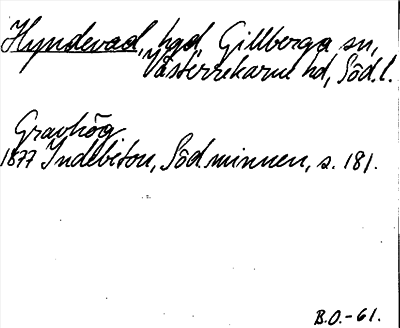 Hyndevad, hgd, Gillberga sn,
Västerrekarne hd, Söd.l.
Gravhög
1877 Indebetou, Söd. minnen, s. 181.
B.O.-61.